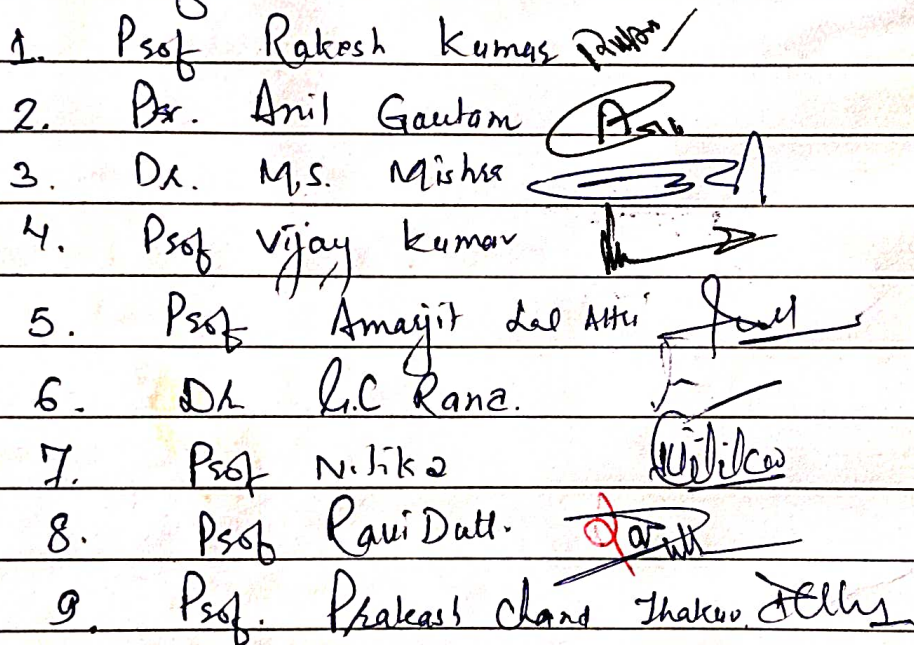 1. Prof Rakesh Kumar
2. Dr. Anil Gautam
3. Dr. M.S. Mishra
4. Prof Vijay Kumar
5. Prof Amarjit Lal Attri
6. Dr G.C Rana.
7. Prof Nitika Nitika
8. Prof Ravi Dutt.
9. Prof. Prakash Chand Thakur.